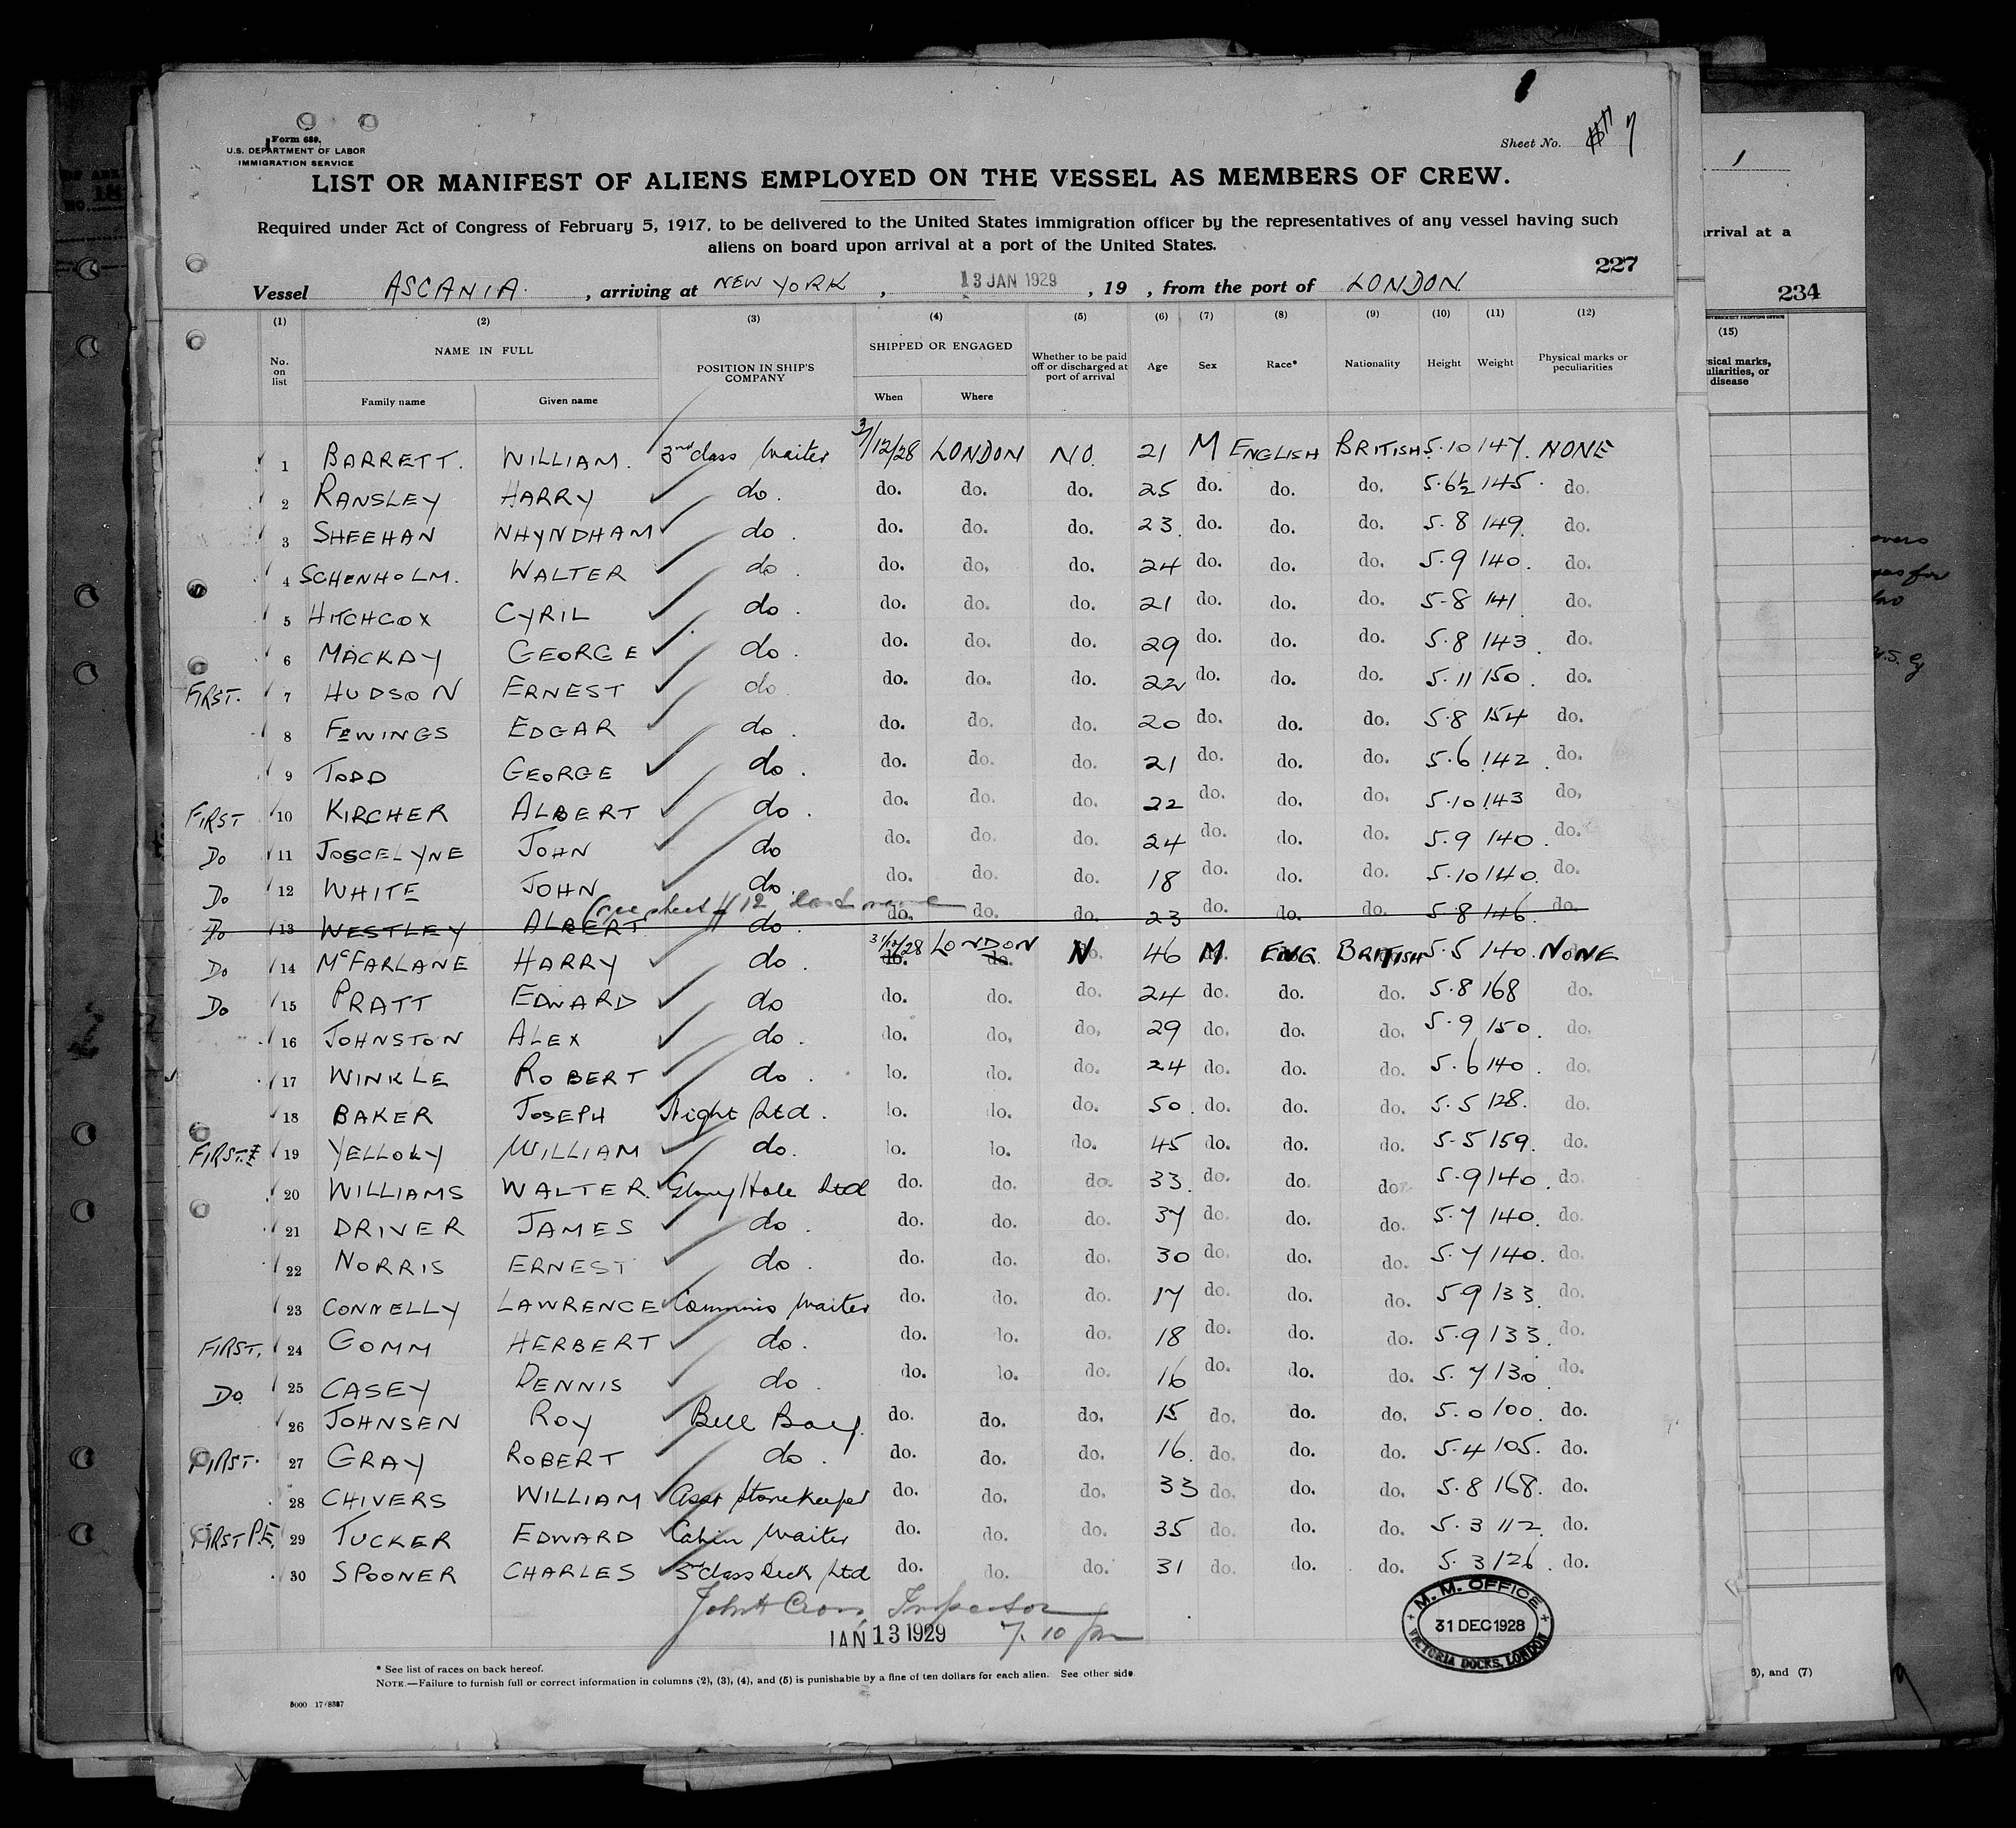 Form 689,
U.S. DEPARTMENT OF LABOR
IMMIGRATION SERVICE
Sheet No. 7
LIST OR MANIFEST OF ALIENS EMPLOYED ON THE VESSEL AS MEMBERS OF CREW.
Required under Act of Congress of February 5, 1917, to be delivered to the United States immigration officer by the representatives of any vessel having such
aliens on board upon arrival at a port of the United States.
227
Vessel ASCANIA. , arriving at NEW YORK , 13 JAN 1929 , 19 , from the port of LONDON
(1) (2) (3) (4) (5) (6) (7) (8) (9) (10) (11) (12)
No. on list NAME IN FULL POSITION IN SHIP'S COMPANY SHIPPED OR ENGAGED Whether to be paid off or discharged at port of arrival Age Sex Race* Nationality Height Weight Physical marks or peculiarities
Family name Given name When Where
1 BARRETT. WILLIAM. 3rd class Waiter 31/12/28 LONDON NO. 21 M ENGLISH BRITISH 5.10 147. NONE
2 RANSLEY HARRY do. do. do. do. 25 do. do. do. 5.6½ 145. do.
3 SHEEHAN NHYNDHAM do. do. do. do. 23. do. do. do. 5.8 149. do.
4 SCHENHOLM. WALTER do. do. do. do. 24 do. do. do. 5.9 140. do.
5 HITCHCOX CYRIL do. do. do. do. 21 do. do. do. 5-8 141 do.
6 MACKAY GEORGE do. do. do. do. 29 do. do. do. 5.8 143. do.
FIRST. 7 HUDSON ERNEST do. do. do. do. 22 do. do. do. 5.11 150. do.
8 FEWINGS EDGAR do. do. do. do. 20 do. do. do. 5.8 154 do.
9 TODD GEORGE do. do. do. do. 21 do. do. do. 5.6 142. do.
FIRST 10 KIRCHER ALBERT do. do. do. do. 22 do. do. do. 5.10 143 do.
Do 11 JOSCELYNE JOHN do do. do. do. 24 do. do. do. 5.9 140. do.
Do 12 WHITE JOHN do do. do. do. 18 do. do. do. 5.10 140. do.
(see sheet # 12 last name
Do 13 WESTLEY ALBERT do. do. do. do. 23 do. do. do. 5.8 146. do.
Do 14 McFARLANE HARRY do. 31/12/28 LONDON N 46 M ENG. BRITISH 5.5 140. NONE
Do 15 PRATT EDWARD do do. do. do. 24 do. do. do. 5.8 168 do.
16 JOHNSTON ALEX do. do. do. do. 29 do. do. do. 5.9 150. do.
17 WINKLE ROBERT do. do. do. do. 24 do. do. do. 5.6 140. do.
18 BAKER JOSEPH Night Std. do. do. do. 50. do. do. do. 5.5 128. do.
FIRST. 19 YELLOLY WILLIAM do. do. do. do. 45 do. do. do. 5-5 159. do.
20 WILLIAMS WALTER. Glory Hole Std do. do. do. 33. do. do. do. 5.9 140. do.
21 DRIVER JAMES do. do. do. do. 37 do. do. do. 5.7 140. do.
22 NORRIS ERNEST do. do. do. do. 30 do. do. do. 5.7 140. do.
23 CONNELLY LAWRENCE Commis Waiter do. do. do. 17 do. do. do. 5.9 133. do.
FIRST. 24 GOMM HERBERT do. do. do. do. 18 do. do. do. 5.9 133. do.
Do. 25 CASEY DENNIS do. do. do. do. 16 do. do. do. 5.7 130. do.
26 JOHNSEN ROY Bell Boy. do. do. do. 15 do. do. do. 5.0 100. do.
FIRST. 27 GRAY ROBERT do. do. do. do. 16. do. do. do. 5.4 105. do.
28 CHIVERS WILLIAM Asst Storekeeper do. do. do. 33 do. do. do. 5.8 168. do.
FIRST P.E. 29 TUCKER EDWARD Cabin Waiter do. do. do. 35 do. do. do. 5.3 112. do.
30 SPOONER CHARLES 3rd class Deck Std do. do. do. 31 do. do. do. 5.3 126. do.
John Cross, Inspector
JAN 13 1929 7.10 pm
M. M. OFFICE
31 DEC 1928
VICTORIA DOCKS, LONDON
* See list of races on back hereof.
NOTE.—Failure to furnish full or correct information in columns (2), (3), (4), and (5) is punishable by a fine of ten dollars for each alien. See other side.
arrival at a
234
(15)
disease
and (7)